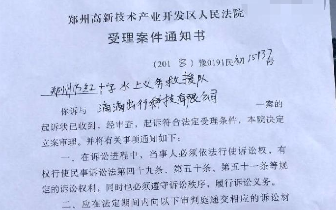 郑州高新技术产业开发区人民法院
受理案件通知书
(2018)豫0191民初15937号
郑州市红十字水上义务救援队
你诉与 滴滴出行科技有限公司 一案的
起诉状已收到。经审查,起诉符合法定受理条件,本院决定
立案审理,并将有关事项通知如下:
一、在诉讼进程中,当事人必须依法行使诉讼权,有
权行使民事诉讼法第四十九条、第五十条、第五十一条等规
定的诉讼权利,同时也必须遵守诉讼秩序,履行诉讼义务。
二、应在法定期间内向以下审判庭递交相应的诉讼材